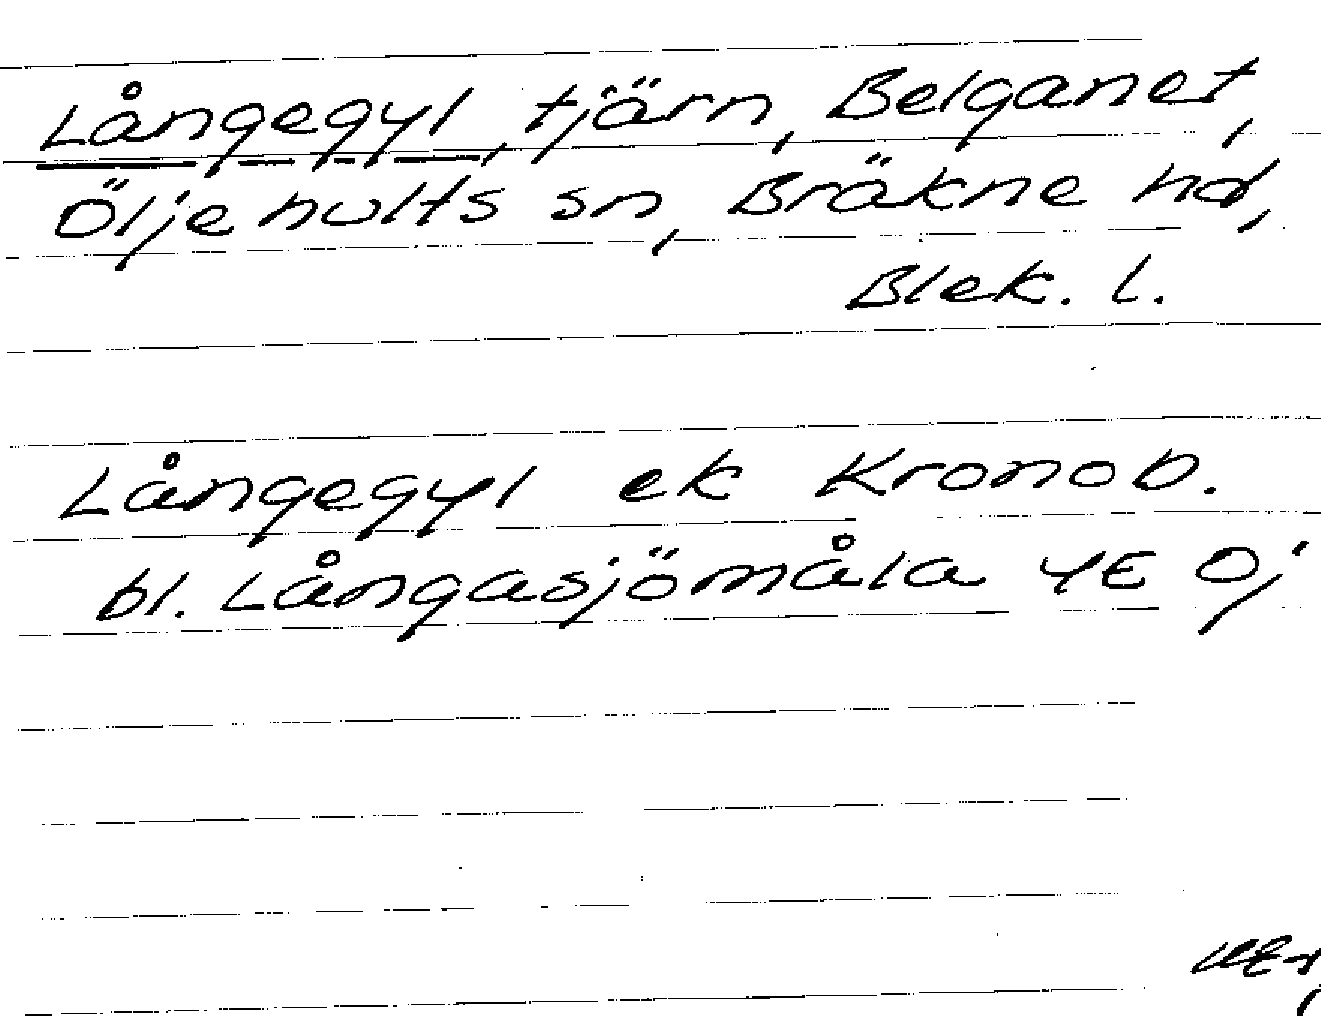 Långegyl, tjärn, Belganet,
Öljehults sn, Bräkne hd,
Blek. l.
Långegyl ek Kronob.
bl. Långasjömåla 4E Oj